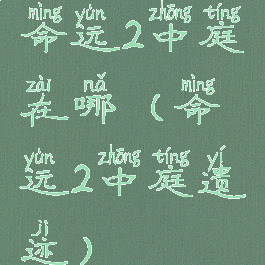 mìng yùn zhōng tíng
命运2中庭
zài nǎ mìng
在哪（命
yùn zhōng tíng yí
运2中庭遗
jì
迹）